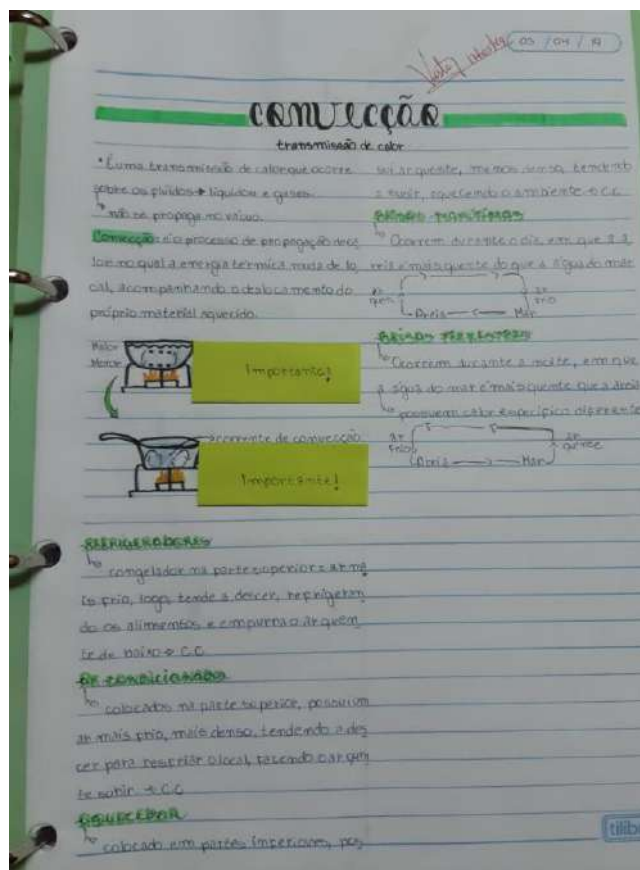 03 / 04 / 19
CONVECÇÃO
transmissão de calor
• É uma transmissão de calor que ocorre
sobre os fluidos → líquidos e gases
↳ não se propaga no vácuo.
Convecção: é o processo de propagação de ca
lor no qual a energia térmica muda de lo
cal, acompanhando o deslocamento do
próprio material aquecido.
Maior
Menor
Importante!
corrente de convecção
Importante!
REFRIGERADORES
↳ congelador na parte superior = ar ma
is frio, logo, tende a descer, refrigeran
do os alimentos e empurra o ar quen
te de baixo → C.C
AR CONDICIONADO
↳ colocados na parte superior, possuem
ar mais frio, mais denso, tendendo a des
cer para resfriar o local, fazendo o ar quen
te subir → C.C
AQUECEDOR
↳ colocado em partes inferiores, pos
sui ar quente, menos denso, tendendo
a subir, aquecendo o ambiente → C.C
BRISAS MARÍTIMAS
↳ Ocorrem durante o dia, em que a a
reia é mais quente do que a água do mar
ar quen
ar frio
Areia
Mar
BRISAS TERRESTRES
↳ Ocorrem durante a noite, em que
a água do mar é mais quente que a areia
↳ possuem calor específico diferente
ar frio
ar quente
Areia
Mar
tilib